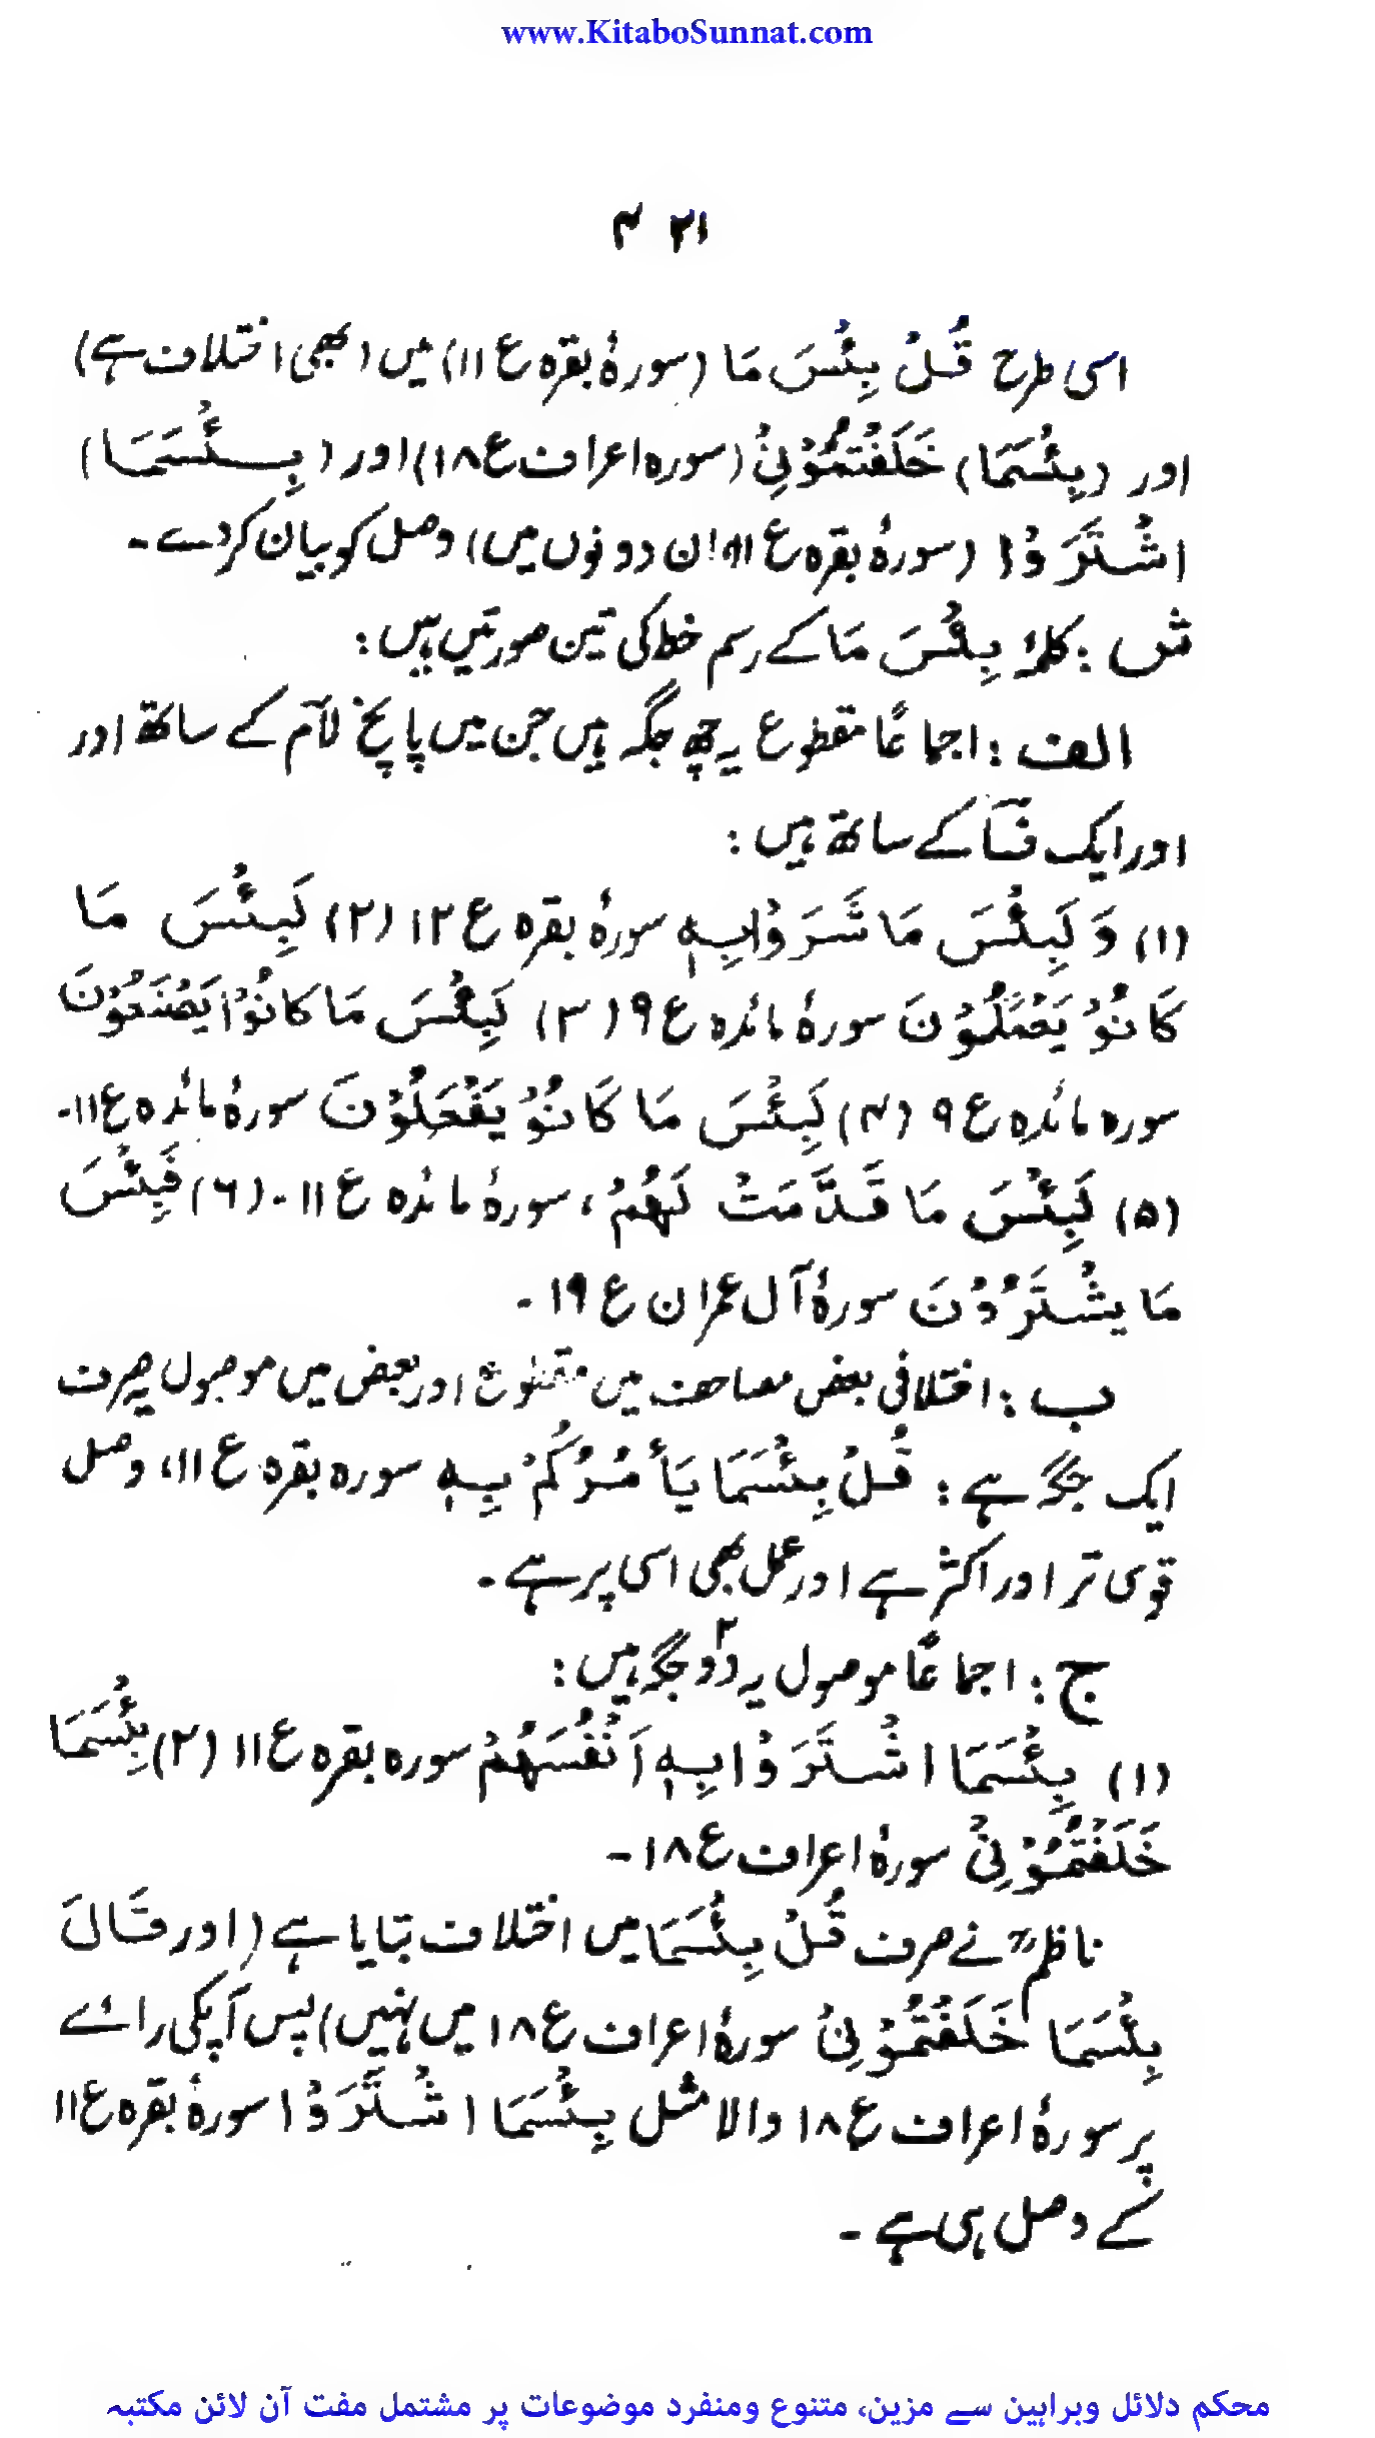 www.KitaboSunnat.com
۴۲۱
اسی طرح قُلْ بِئْسَ مَا (سورۂ بقرہ ع ۱۱) میں (بھی اختلاف ہے)
اور (بِئْسَمَا) خَلَفْتُمُوْنِیْ (سورہ اعراف ع ۱۸) اور (بِئْسَمَا)
اشْتَرَوْا (سورۂ بقرہ ع ۱۱ ان دونوں میں) وصل کو بیان کردے۔
ش : کلمۂ بِئْسَ مَا کے رسم خط کی تین صورتیں ہیں :
الف : اجماعًا مقطوع یہ چھ جگہ ہیں جن میں پانچ لآم کے ساتھ اور
اور ایک فَآ کے ساتھ ہیں :
(۱) وَلَبِئْسَ مَا شَرَوْا بِہٖ سورۂ بقرہ ع ۱۲ (۲) لَبِئْسَ مَا
کَانُوْ یَعْمَلُوْنَ سورۂ مائدہ ع ۹ (۳) لَبِئْسَ مَا کَانُوْا یَصْنَعُوْنَ
سورہ مائدہ ع ۹ (۴) لَبِئْسَ مَا کَانُوْ یَفْعَلُوْنَ سورۂ مائدہ ع ۱۱۔
(۵) لَبِئْسَ مَا قَدَّمَتْ لَهُمْ ، سورۂ مائدہ ع ۱۱۔ (۶) فَبِئْسَ
مَا یشْتَرُوْنَ سورۂ آل عمران ع ۱۹۔
ب : اختلافی بعض مصاحف میں مقطوع اور بعض میں موصول یہ صرف
ایک جگہ ہے : قُلْ بِئْسَمَا یَأْمُرُکُمْ بِہٖ سورہ بقرہ ع ۱۱، وصل
قوی تر اور اکثر ہے اور عمل بھی اسی پر ہے۔
ج : اجماعًا موصول یہ دو۲ جگہ ہیں :
(۱) بِئْسَمَا اشْتَرَوْا بِہٖ اَنْفُسَهُمْ سورہ بقرہ ع ۱۱ (۲) بِئْسَمَا
خَلَفْتُمُوْنِیْ سورۂ اعراف ع ۱۸۔
ناظمؒ نے صرف قُلْ بِئْسَمَا میں اختلاف بتایا ہے (اور قَالَ
بِئْسَمَا خَلَفْتُمُوْنِیْ سورۂ اعراف ع ۱۸ میں نہیں) پس آپکی رائے
پر سورۂ اعراف ع ۱۸ والا مثل بِئْسَمَا اشْتَرَوْا سورۂ بقرہ ع ۱۱
کے وصل ہی ہے۔
محکم دلائل وبراہین سے مزین، متنوع ومنفرد موضوعات پر مشتمل مفت آن لائن مکتبہ